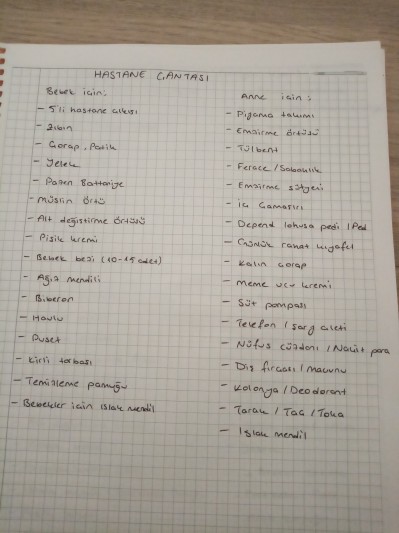 HASTANE ÇANTASI
Bebek için:
- 5'li hastane çıkışı
- Zıbın
- Çorap, Patik
- Yelek
- Pazen Battaniye
- Müslin Örtü
- Alt değiştirme örtüsü
- Pişik kremi
- Bebek bezi (10-15 adet)
- Ağız mendili
- Biberon
- Havlu
- Puset
- Kirli torbası
- Temizleme pamuğu
- Bebekler için Islak mendil
Anne için:
- Pijama takımı
- Emzirme örtüsü
- Tülbent
- Ferace / Sabahlık
- Emzirme sütyeni
- İç Çamaşırı
- Depend lohusa pedi / Ped
- Günlük rahat kıyafet
- Kalın çorap
- Meme ucu kremi
- Süt pompası
- Telefon / şarj aleti
- Nüfus cüzdanı / Nakit para
- Diş fırçası / macunu
- Kolonya / Deodorant
- Tarak / Taç / Toka
- Islak mendil